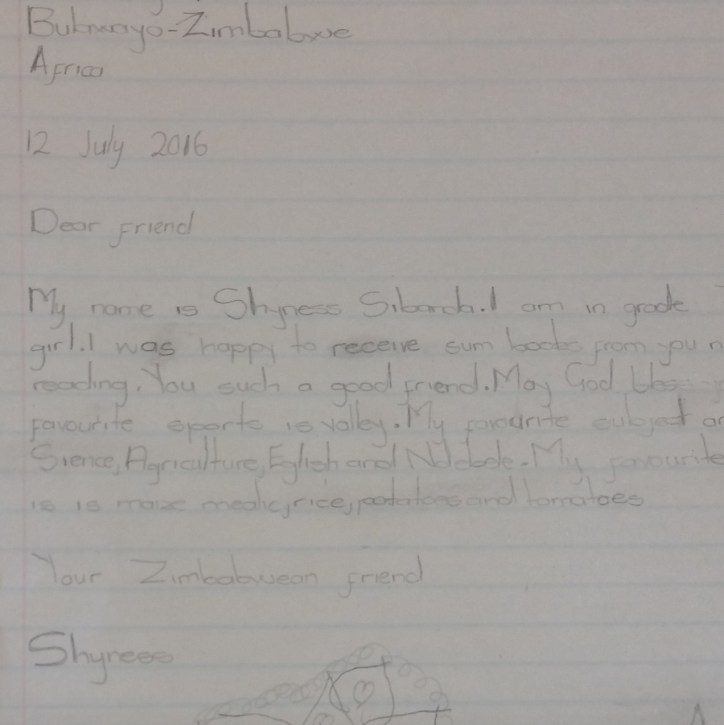 Bubwayo-Zimbabwe
Africa
12 July 2016
Dear friend
My name is Shyness Sibanda.I am in grade
girl.I was happy to receive sum books from you
reading. You such a good friend.May God bless
favourite sports is valley.My favourite subject
Sience,Agriculture,Eglish and Ndebele.My favourite
is is maize mealie,rice,potatoes and tomatoes
Your Zimbabwean friend
Shyness